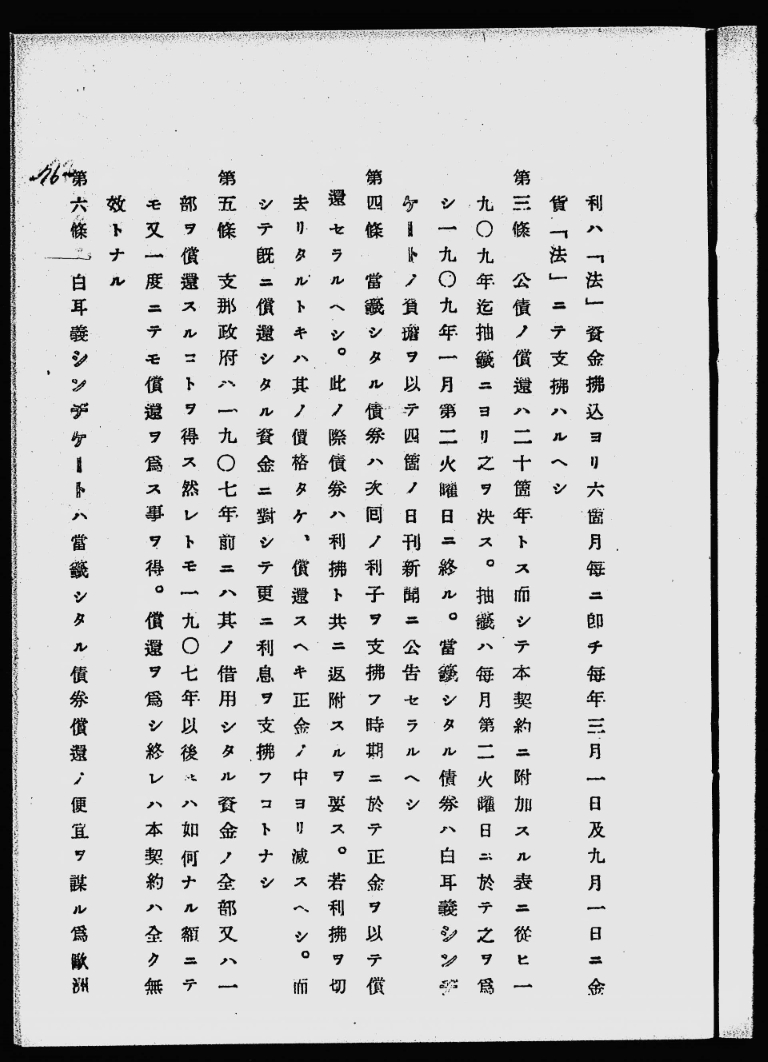 利ハ「法」資金拂込ヨリ六箇月每ニ卽チ每年三月一日及九月一日ニ金
貨「法」ニテ支拂ハルヘシ
第三條　公債ノ償還ハ二十箇年トス而シテ本契約ニ附加スル表ニ從ヒ一
九〇九年迄抽籤ニヨリ之ヲ決ス。抽籤ハ每月第二火曜日ニ於テ之ヲ爲
シ一九〇九年一月第二火曜日ニ終ル。當籤シタル債券ハ白耳義シンヂ
ケートノ負擔ヲ以テ四箇ノ日刊新聞ニ公告セラルヘシ
第四條　當籤シタル債券ハ次囘ノ利子ヲ支拂フ時期ニ於テ正金ヲ以テ償
還セラルヘシ。此ノ際債券ハ利拂ト共ニ返附スルヲ要ス。若利拂ヲ切
去リタルトキハ其ノ價格タケ、償還スヘキ正金ノ中ヨリ減スヘシ。而
シテ旣ニ償還シタル資金ニ對シテ更ニ利息ヲ支拂フコトナシ
第五條　支那政府ハ一九〇七年前ニハ其ノ借用シタル資金ノ全部又ハ一
部ヲ償還スルコトヲ得ス然レトモ一九〇七年以後ニハ如何ナル額ニテ
モ又一度ニテモ償還ヲ爲ス事ヲ得。償還ヲ爲シ終レハ本契約ハ全ク無
效トナル
第六條　白耳義シンヂケートハ當籤シタル債券償還ノ便宜ヲ謀ル爲歐洲